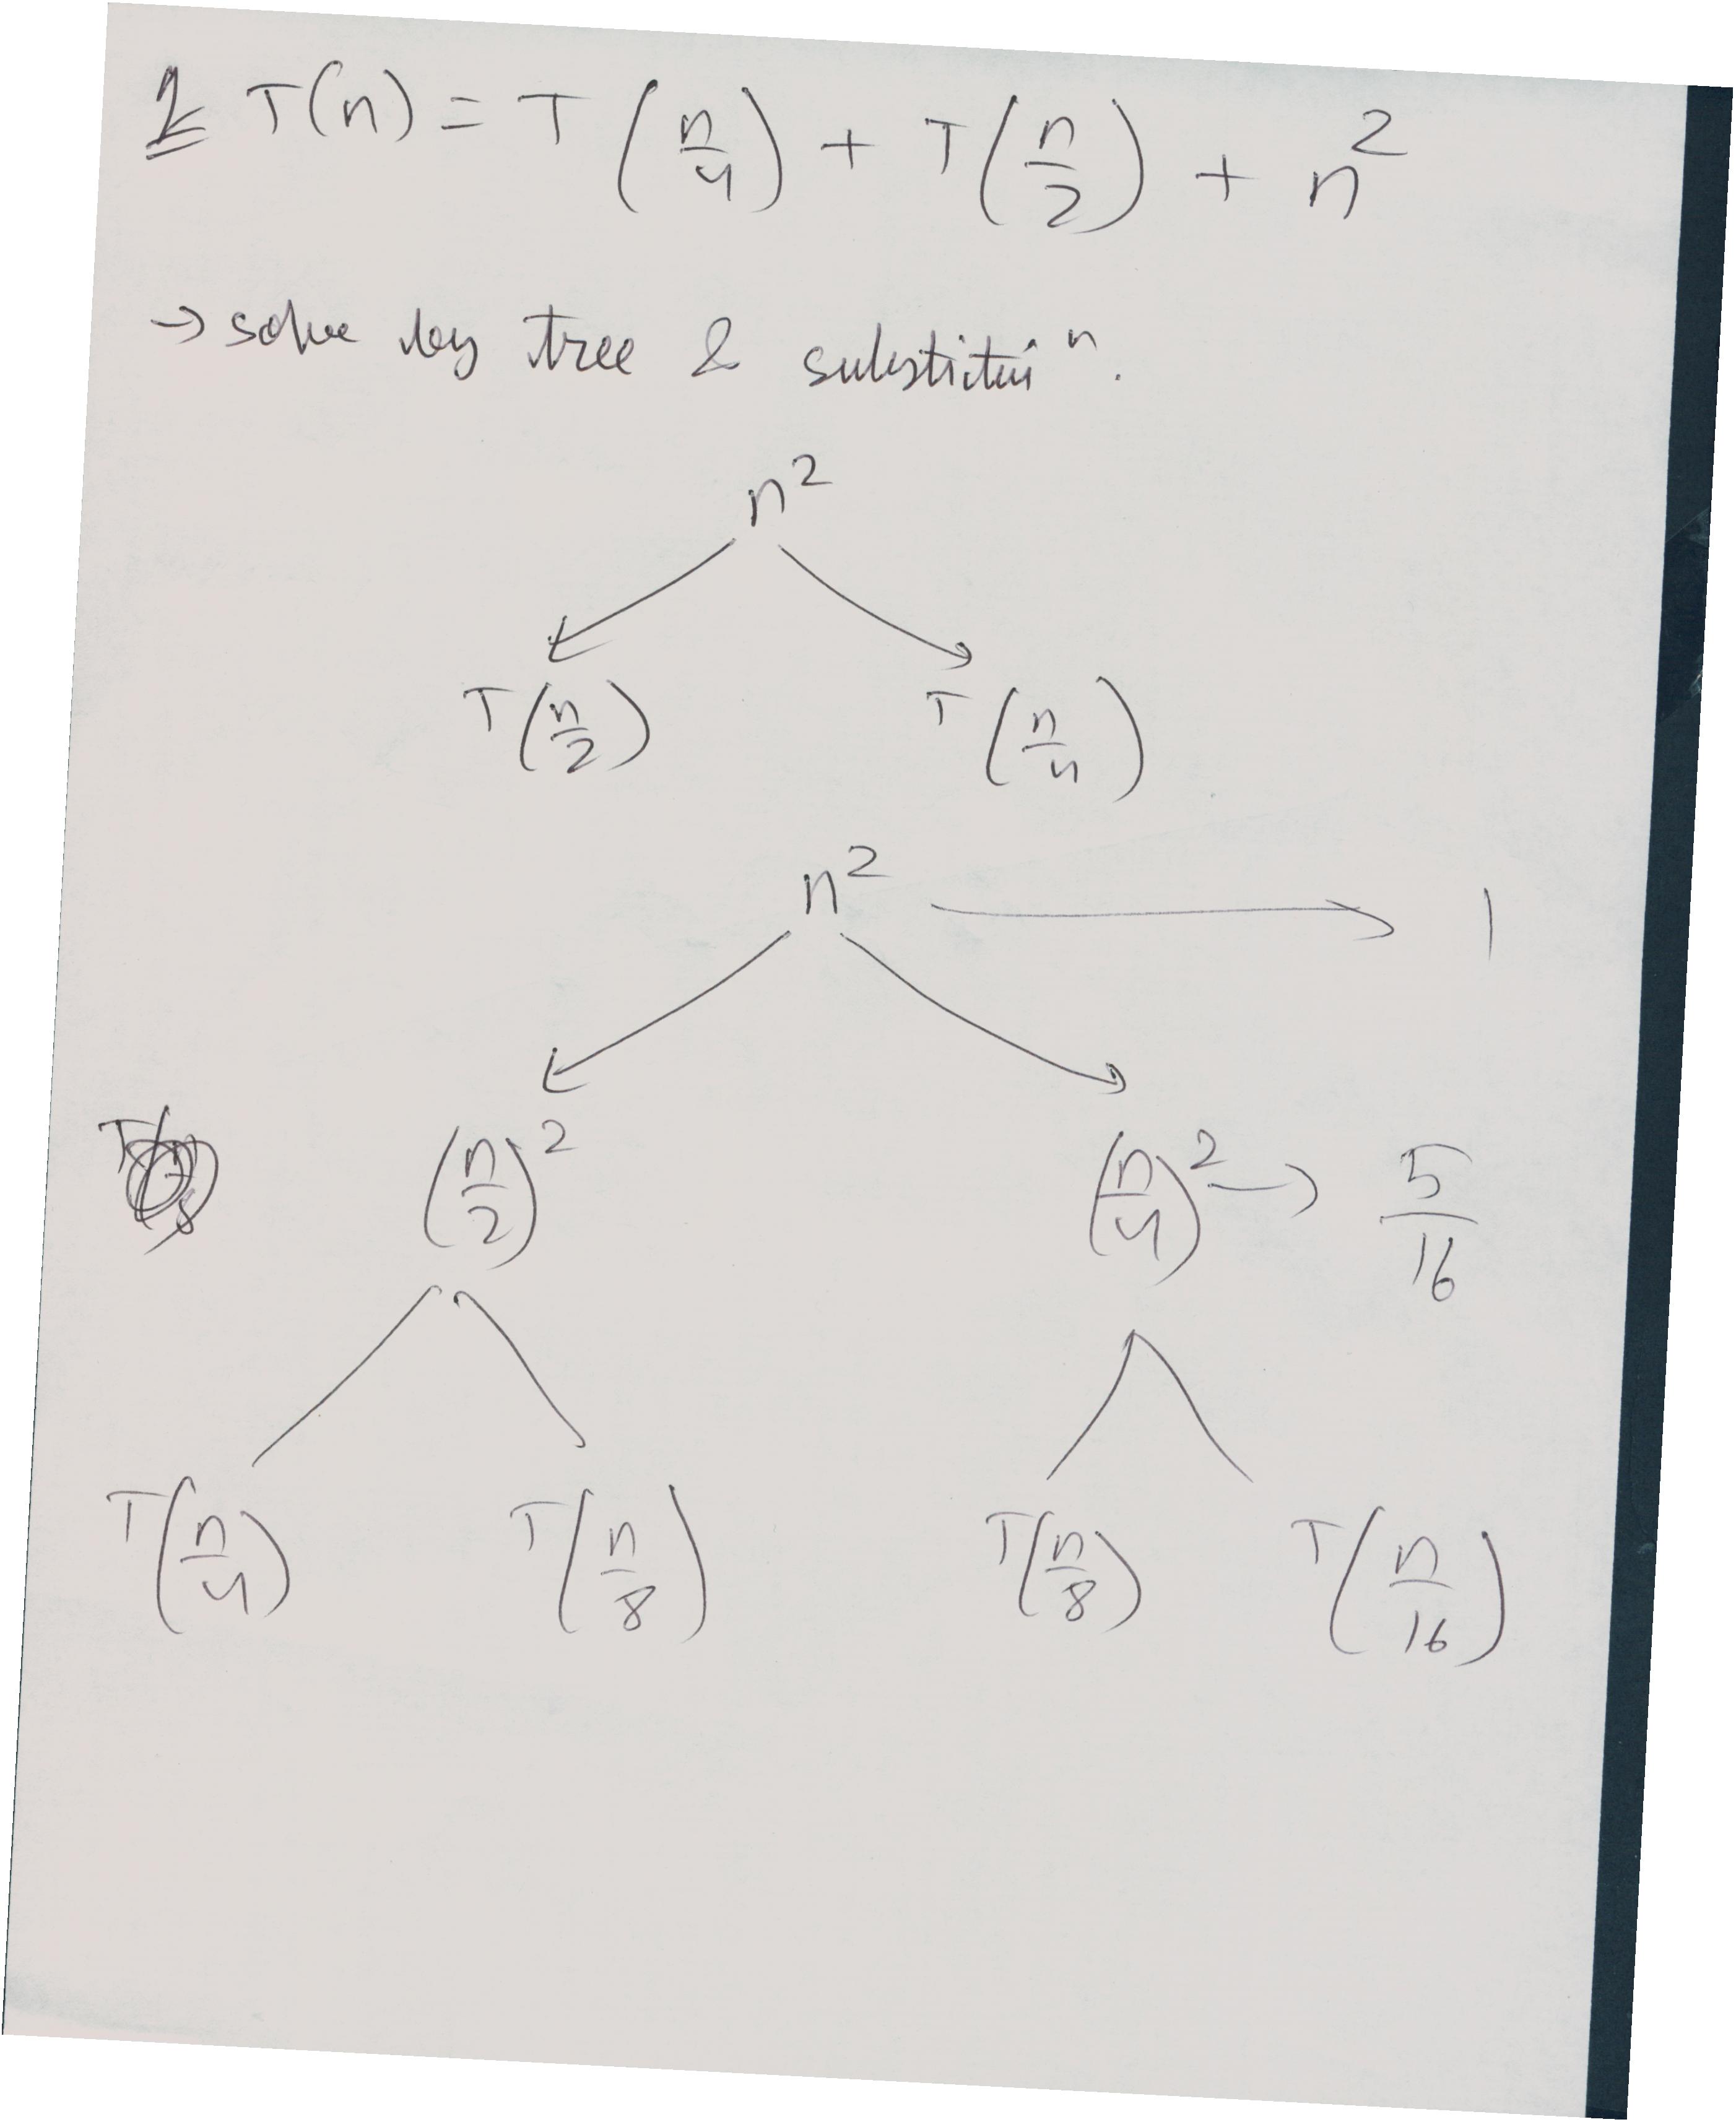 1 T(n) = T(n/4) + T(n/2) + n²
→ solve by tree & substituiⁿ.
n²
T(n/2) T(n/4)
n² → 1
(n/2)² (n/4)² → 5/16
T(n/4) T(n/8) T(n/8) T(n/16)